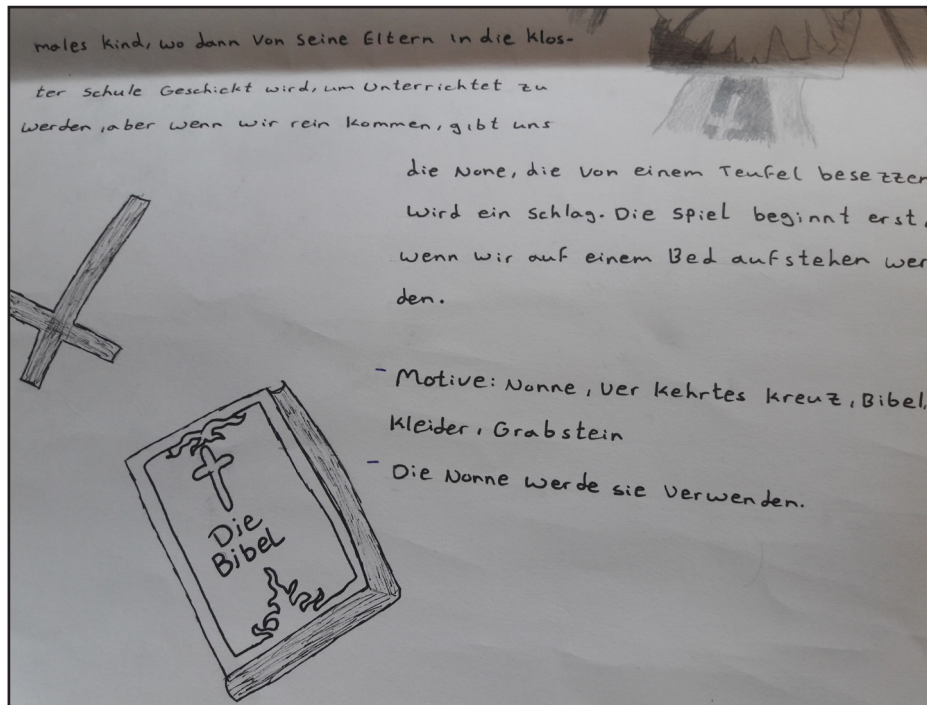 males Kind, wo dann von seine Eltern in die Klos-
ter schule Geschickt wird, um unterrichtet zu
werden, aber wenn wir rein kommen, gibt uns
die None, die von einem Teufel besezzen
wird ein schlag. Die spiel beginnt erst,
wenn wir auf einem Bed aufstehen wer
den.
- Motive: Nonne, ver kehrtes kreuz, Bibel,
Kleider, Grabstein
- Die Nonne werde sie verwenden.
Die
Bibel